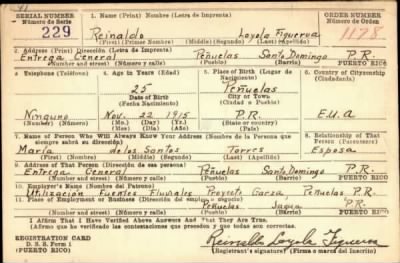 SERIAL NUMBER
Número de Serie
229
1. Name (Print) Nombre (Letra de Imprenta)
Reinaldo Loyola Figueroa
(First) (Primer Nombre) (Middle) (Segundo) (Last) (Apellido)
ORDER NUMBER
Número de Orden
1178
2. Address (Print) Dirección (Letra de Imprenta)
Entrega General Peñuelas Santo Domingo P.R.
(Number and street) (Número y calle) (Town) (Pueblo) (Barrio) PUERTO RICO
3. Telephone (Teléfono)
Ninguno
(Number) (Número)
4. Age in Years (Edad)
25
Date of Birth
(Fecha Nacimiento)
Nov. 22 1915
(Mo.) (Day) (Yr.)
(Mes) (Día) (Año)
5. Place of Birth (Lugar de Nacimiento)
Peñuelas
City or Town
(Ciudad o Pueblo)
P.R.
(State or country)
(País)
6. Country of Citizenship
(Ciudadanía)
E.U.A
7. Name of Person Who Will Always Know Your Address (Nombre de la Persona que siempre sabrá su dirección)
María de los Santos Torres
(First) (Nombre) (Middle) (Segundo) (Last) (Apellido)
8. Relationship of That Person (Parentesco)
Esposa
9. Address of That Person (Dirección de esa persona)
Entrega General Peñuelas Santo Domingo P.R.
(Number and street) (Número y calle) (Town) (Pueblo) (Barrio) PUERTO RICO
10. Employer's Name (Nombre del Patrono)
Utilización Fuentes Fluviales Proyecto Garza Peñuelas P.R.
11. Place of Employment or Business (Dirección del empleo o negocio)
Peñuelas P.R.
(Number and street) (Número y calle) (Town) (Pueblo) (Barrio) PUERTO RICO
I Affirm That I Have Verified Above Answers And That They Are True.
(Afirmo que he verificado las contestaciones que preceden y que todas son correctas.
REGISTRATION CARD
D. S. S. Form 1
(PUERTO RICO)
Reinaldo Loyola Figueroa
(Registrant's signature) (Firma o marca del Inscrito)